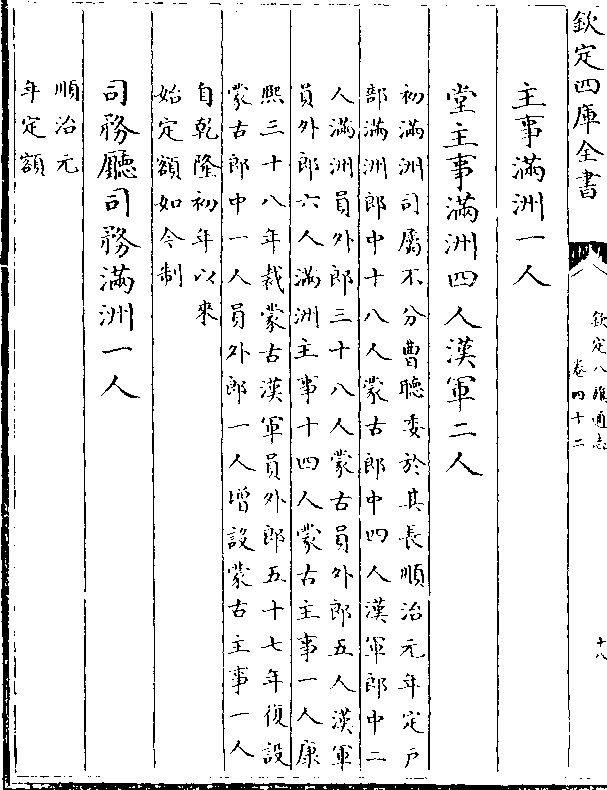 欽定四庫全書
欽定八旗通志
卷四十二
十八
主事滿洲一人
堂主事滿洲四人漢軍二人
初滿洲司屬不分曹聽委於其長順治元年定戸
部滿洲郎中十八人蒙古郎中四人漢軍郎中二
人滿洲員外郎三十八人蒙古員外郎五人漢軍
員外郎六人滿洲主事十四人蒙古主事一人康
熙三十八年裁蒙古漢軍員外郎五十七年復設
蒙古郎中一人員外郎一人增設蒙古主事一人
自乾隆初年以來
始定額如今制
司務廳司務滿洲一人
順治元
年定額